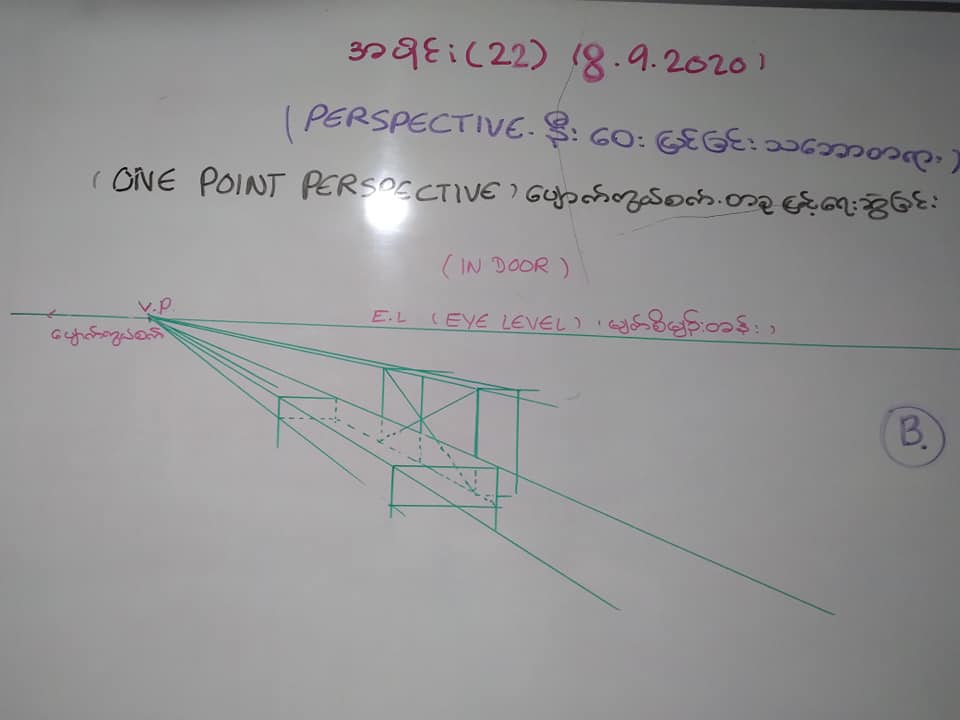 အပိုင်း(22) (8.9.2020)
(PERSPECTIVE. နီး ဝေး မြင်ခြင်း သဘောတရား)
(ONE POINT PERSPECTIVE) ပျောက်ကွယ်စက်.တခု ဖြင့်ရေးဆွဲခြင်း
(IN DOOR)
V.P.
E.L (EYE LEVEL) (မျက်စိမျဉ်းတန်း)
ပျောက်ကွယ်စက်
B.